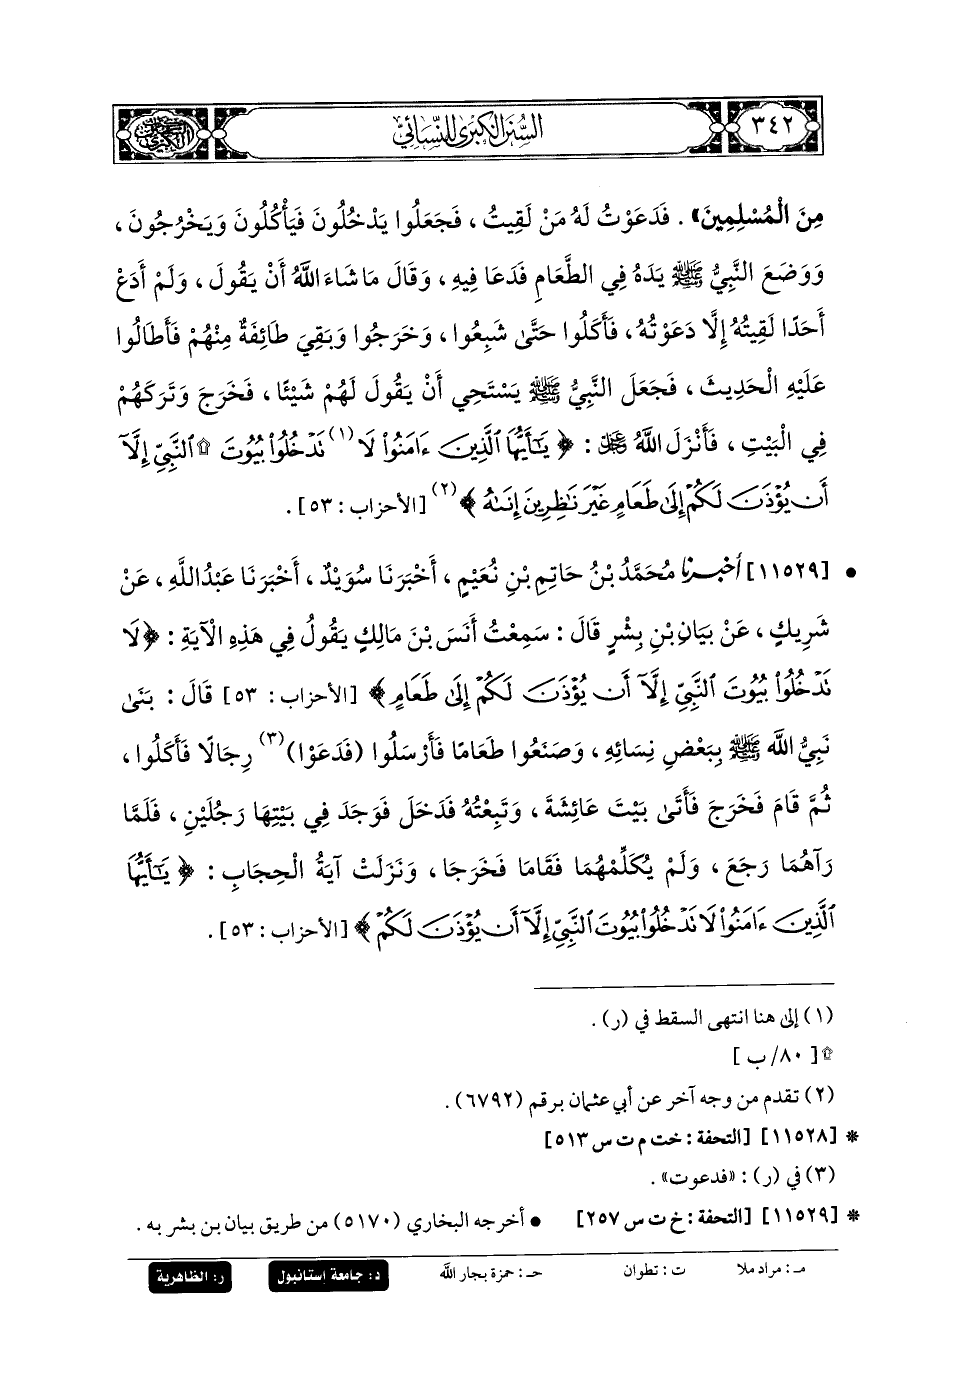 ٣٤٢
السنن الكبرى للنسائي
مِنَ الْمُسْلِمِينَ» . فَدَعَوْتُ لَهُ مَنْ لَقِيتُ ، فَجَعَلُوا يَدْخُلُونَ فَيَأْكُلُونَ وَيَخْرُجُونَ ،
وَوَضَعَ النَّبِيُّ ﷺ يَدَهُ فِي الطَّعَامِ فَدَعَا فِيهِ ، وَقَالَ مَا شَاءَ اللَّهُ أَنْ يَقُولَ ، وَلَمْ أَدَعْ
أَحَدًا لَقِيتُهُ إِلَّا دَعَوْتُهُ ، فَأَكَلُوا حَتَّى شَبِعُوا ، وَخَرَجُوا وَبَقِيَ طَائِفَةٌ مِنْهُمْ فَأَطَالُوا
عَلَيْهِ الْحَدِيثَ ، فَجَعَلَ النَّبِيُّ ﷺ يَسْتَحِي أَنْ يَقُولَ لَهُمْ شَيْئًا ، فَخَرَجَ وَتَرَكَهُمْ
فِي الْبَيْتِ ، فَأَنْزَلَ اللَّهُ ﷻ : ﴿ يَٰٓأَيُّهَا ٱلَّذِينَ ءَامَنُوا۟ لَا (١) تَدْخُلُوا۟ بُيُوتَ ۩ ٱلنَّبِىِّ إِلَّآ
أَن يُؤْذَنَ لَكُمْ إِلَىٰ طَعَامٍ غَيْرَ نَٰظِرِينَ إِنَىٰهُ ﴾ (٢) [الأحزاب : ٥٣] .
• [١١٥٢٩] أَخْبَرَنَا مُحَمَّدُ بْنُ حَاتِمِ بْنِ نُعَيْمٍ ، أَخْبَرَنَا سُوَيْدٌ ، أَخْبَرَنَا عَبْدُ اللَّهِ ، عَنْ
شَرِيكٍ ، عَنْ بَيَانِ بْنِ بِشْرٍ قَالَ : سَمِعْتُ أَنَسَ بْنَ مَالِكٍ يَقُولُ فِي هَذِهِ الْآيَةِ : ﴿ لَا
تَدْخُلُوا۟ بُيُوتَ ٱلنَّبِىِّ إِلَّآ أَن يُؤْذَنَ لَكُمْ إِلَىٰ طَعَامٍ ﴾ [الأحزاب : ٥٣] قَالَ : بَنَى
نَبِيُّ اللَّه ﷺ بِبَعْضِ نِسَائِهِ ، وَصَنَعُوا طَعَامًا فَأَرْسَلُوا (فَدَعَوْا) (٣) رِجَالًا فَأَكَلُوا ،
ثُمَّ قَامَ فَخَرَجَ فَأَتَى بَيْتَ عَائِشَةَ ، وَتَبِعْتُهُ فَدَخَلَ فَوَجَدَ فِي بَيْتِهَا رَجُلَيْنِ ، فَلَمَّا
رَآهُمَا رَجَعَ ، وَلَمْ يُكَلِّمْهُمَا فَقَامَا فَخَرَجَا ، وَنَزَلَتْ آيَةُ الْحِجَابِ : ﴿ يَٰٓأَيُّهَا
ٱلَّذِينَ ءَامَنُوا۟ لَا تَدْخُلُوا۟ بُيُوتَ ٱلنَّبِىِّ إِلَّآ أَن يُؤْذَنَ لَكُمْ ﴾ [الأحزاب : ٥٣] .
(١) إلى هنا انتهى السقط في (ر) .
۩ [ ٨٠/ ب ]
(٢) تقدم من وجه آخر عن أبي عثمان برقم (٦٧٩٢) .
* [١١٥٢٨] [التحفة : خت م ت س ٥١٣]
(٣) في (ر) : «فدعوت» .
* [١١٥٢٩] [التحفة : خ ت س ٢٥٧] • أخرجه البخاري (٥١٧٠) من طريق بيان بن بشر به .
مـ : مراد ملا ت : تطوان حـ : حمزة بجار الله د : جامعة إستانبول ر : الظاهرية